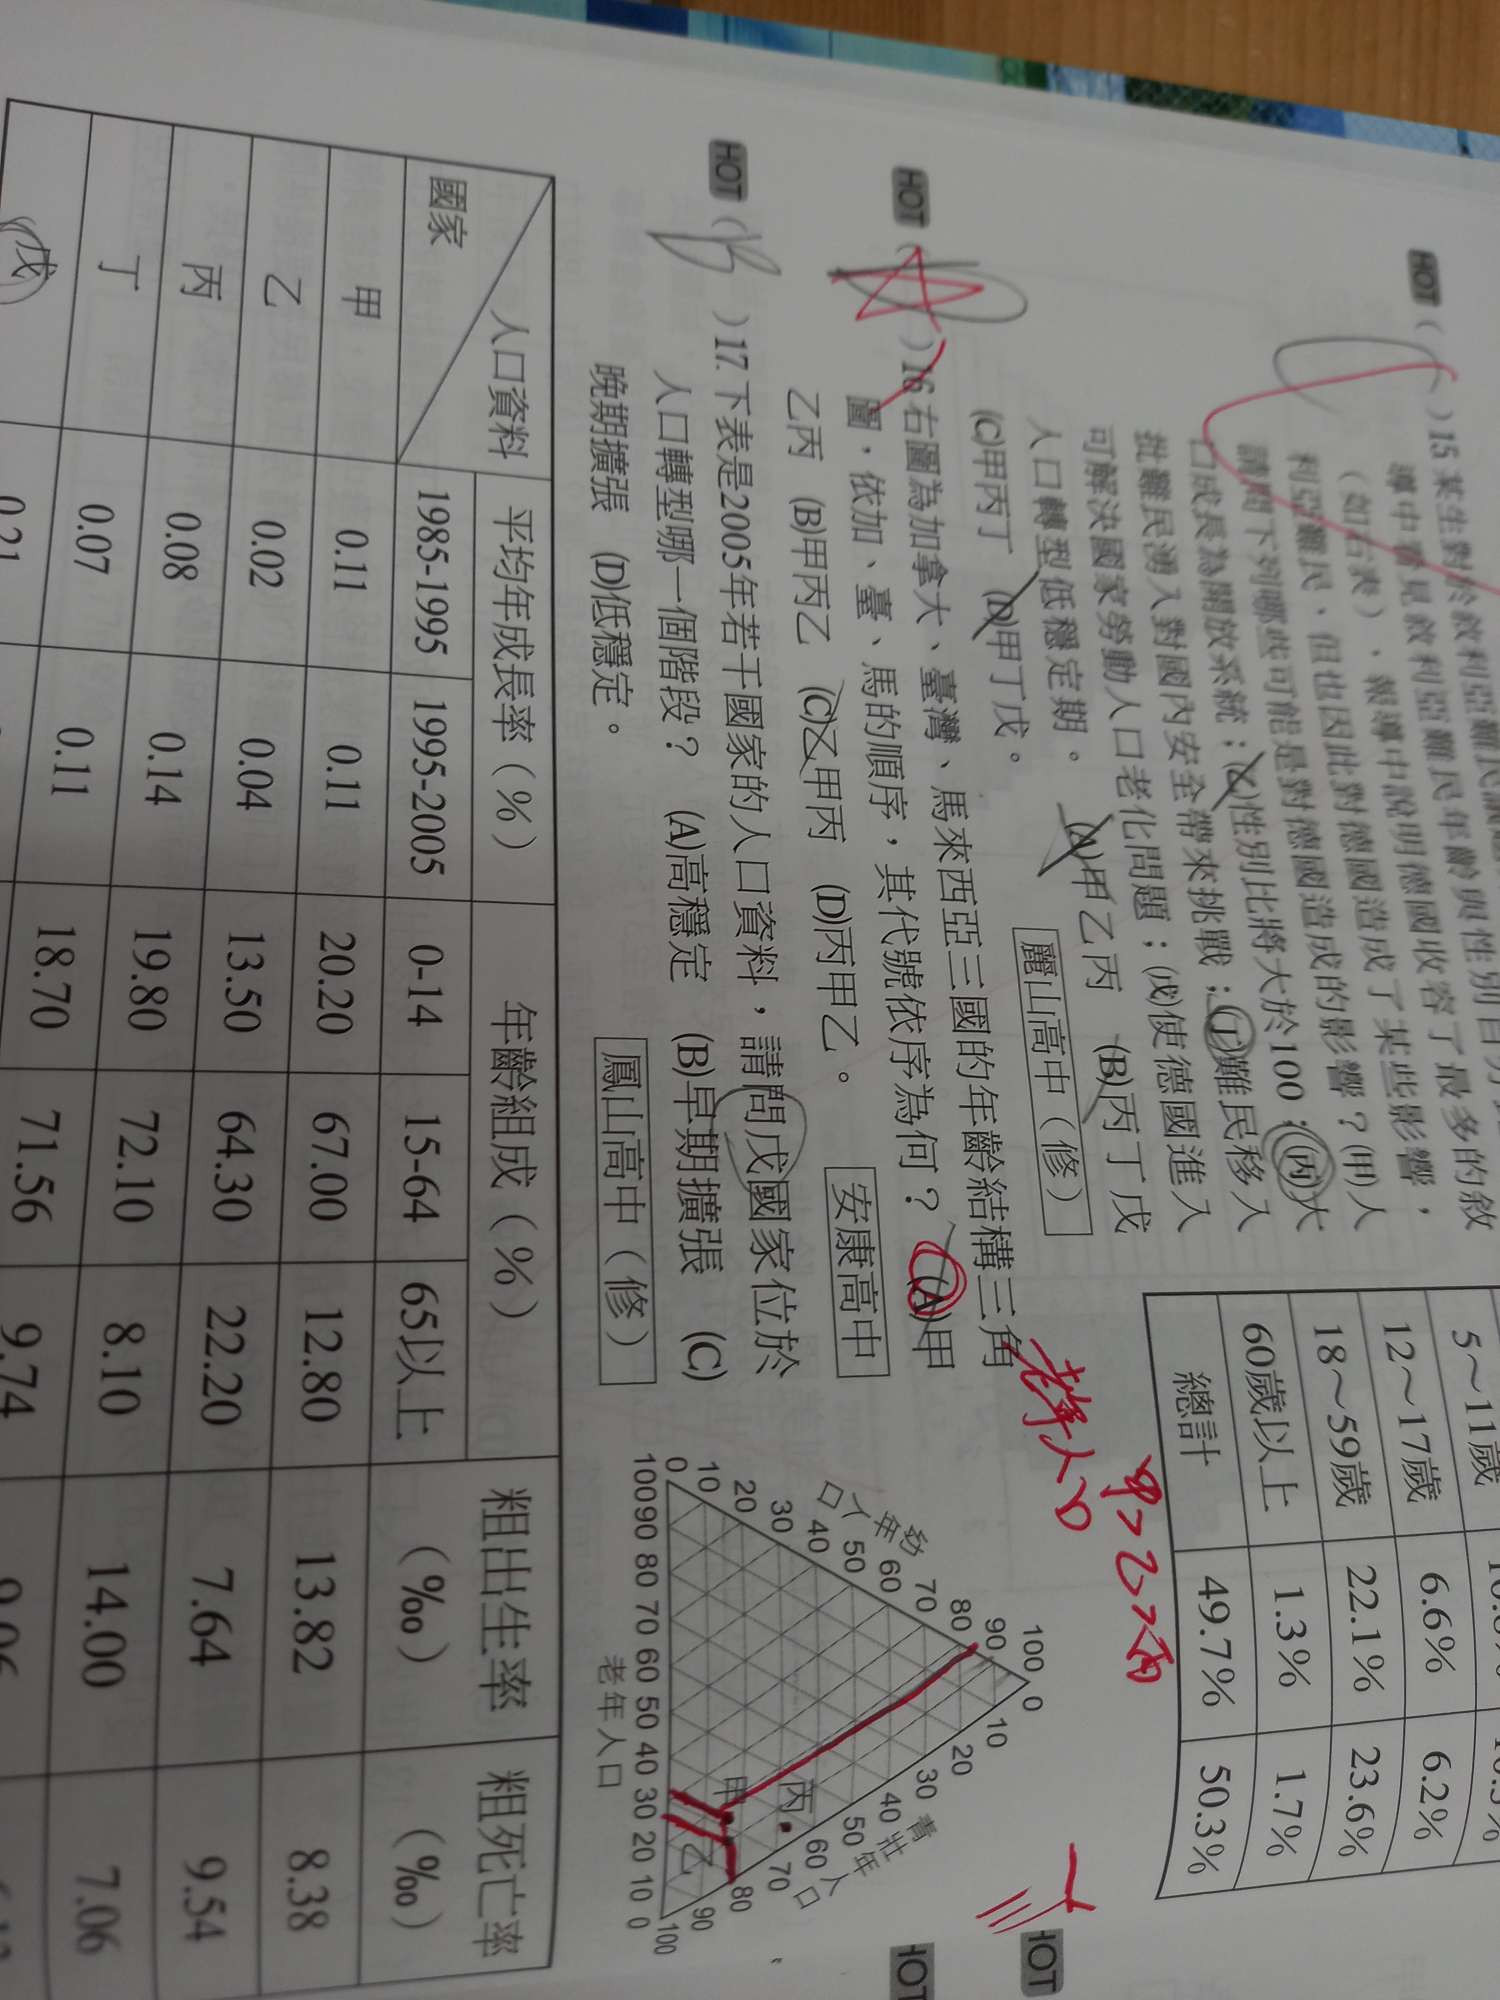 HOT ( )15.某生對於敘利亞難民議題
導中看見敘利亞難民年齡與性別百分
(如右表),報導中說明德國收容了最多的敘
利亞難民,但也因此對德國造成了某些影響,
請問下列哪些可能是對德國造成的影響?(甲)人
口成長為開放系統;(乙)性別比將大於100;(丙)大
批難民湧入對國內安全帶來挑戰;(丁)難民移入
可解決國家勞動人口老化問題;(戊)使德國進入
人口轉型低穩定期。 (A)甲乙丙 (B)丙丁戊
(C)甲丙丁 (D)甲丁戊。 麗山高中(修)
5～11歲
12～17歲 6.6% 6.2%
18～59歲 22.1% 23.6%
60歲以上 1.3% 1.7%
總計 49.7% 50.3%
HOT ( )16.右圖為加拿大、臺灣、馬來西亞三國的年齡結構三角
圖,依加、臺、馬的順序,其代號依序為何? (A)甲
乙丙 (B)甲丙乙 (C)乙甲丙 (D)丙甲乙。 安康高中
老年人口
甲>乙>丙
HOT
HOT
幼年人口
0 10 20 30 40 50 60 70 80 90 100
青壯年人口
0 10 20 30 40 50 60 70 80 90 100
甲
乙
丙
100 90 80 70 60 50 40 30 20 10 0
老年人口
HOT ( B )17.下表是2005年若干國家的人口資料,請問戊國家位於
人口轉型哪一個階段? (A)高穩定 (B)早期擴張 (C)
晚期擴張 (D)低穩定。 鳳山高中(修)
人口資料 平均年成長率(%) 年齡組成(%) 粗出生率(‰) 粗死亡率(‰)
國家 1985-1995 1995-2005 0-14 15-64 65以上
甲 0.11 0.11 20.20 67.00 12.80 13.82 8.38
乙 0.02 0.04 13.50 64.30 22.20 7.64 9.54
丙 0.08 0.14 19.80 72.10 8.10 14.00 7.06
丁 0.07 0.11 18.70 71.56 9.74
戊 0.21